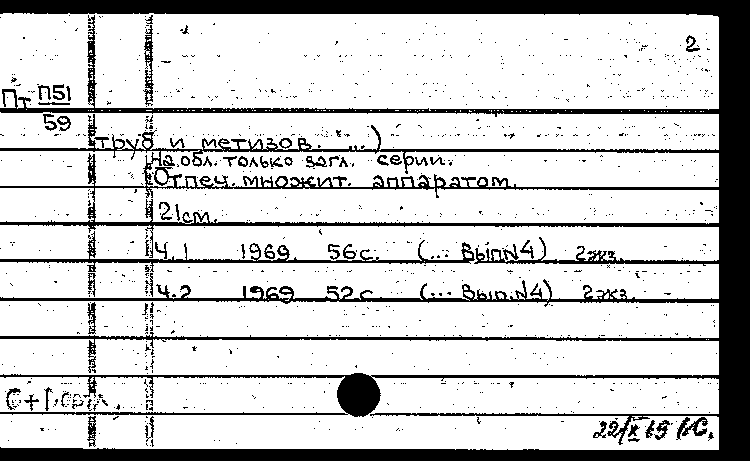 2
Пт П51
59
труб и метизов. ...)
На обл. только загл. серии.
Отпеч. множит. аппаратом.
21см.
Ч.1 1969. 56с. (... Вып№4) 2экз.
Ч.2 1969 52с (... Вып.№4) 2экз.
С+1
22/X 69